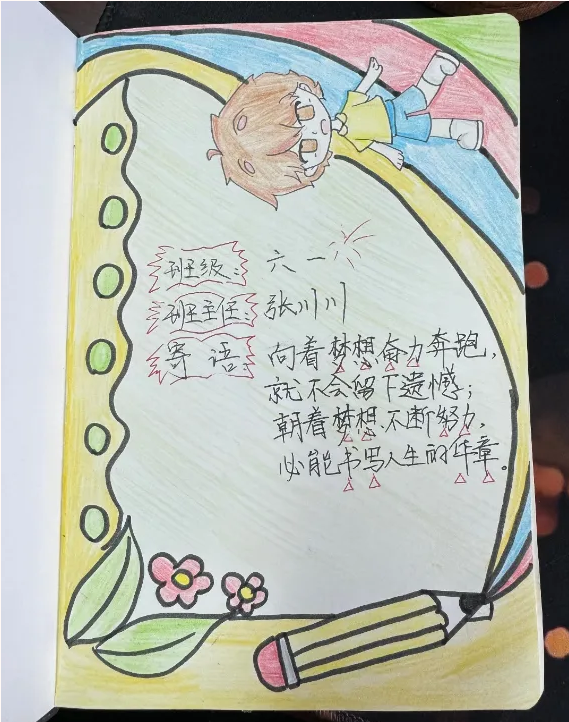 班级：六一
班主任：张川川
寄语：向着梦想奋力奔跑，
就不会留下遗憾；
朝着梦想不断努力，
必能书写人生的华章。